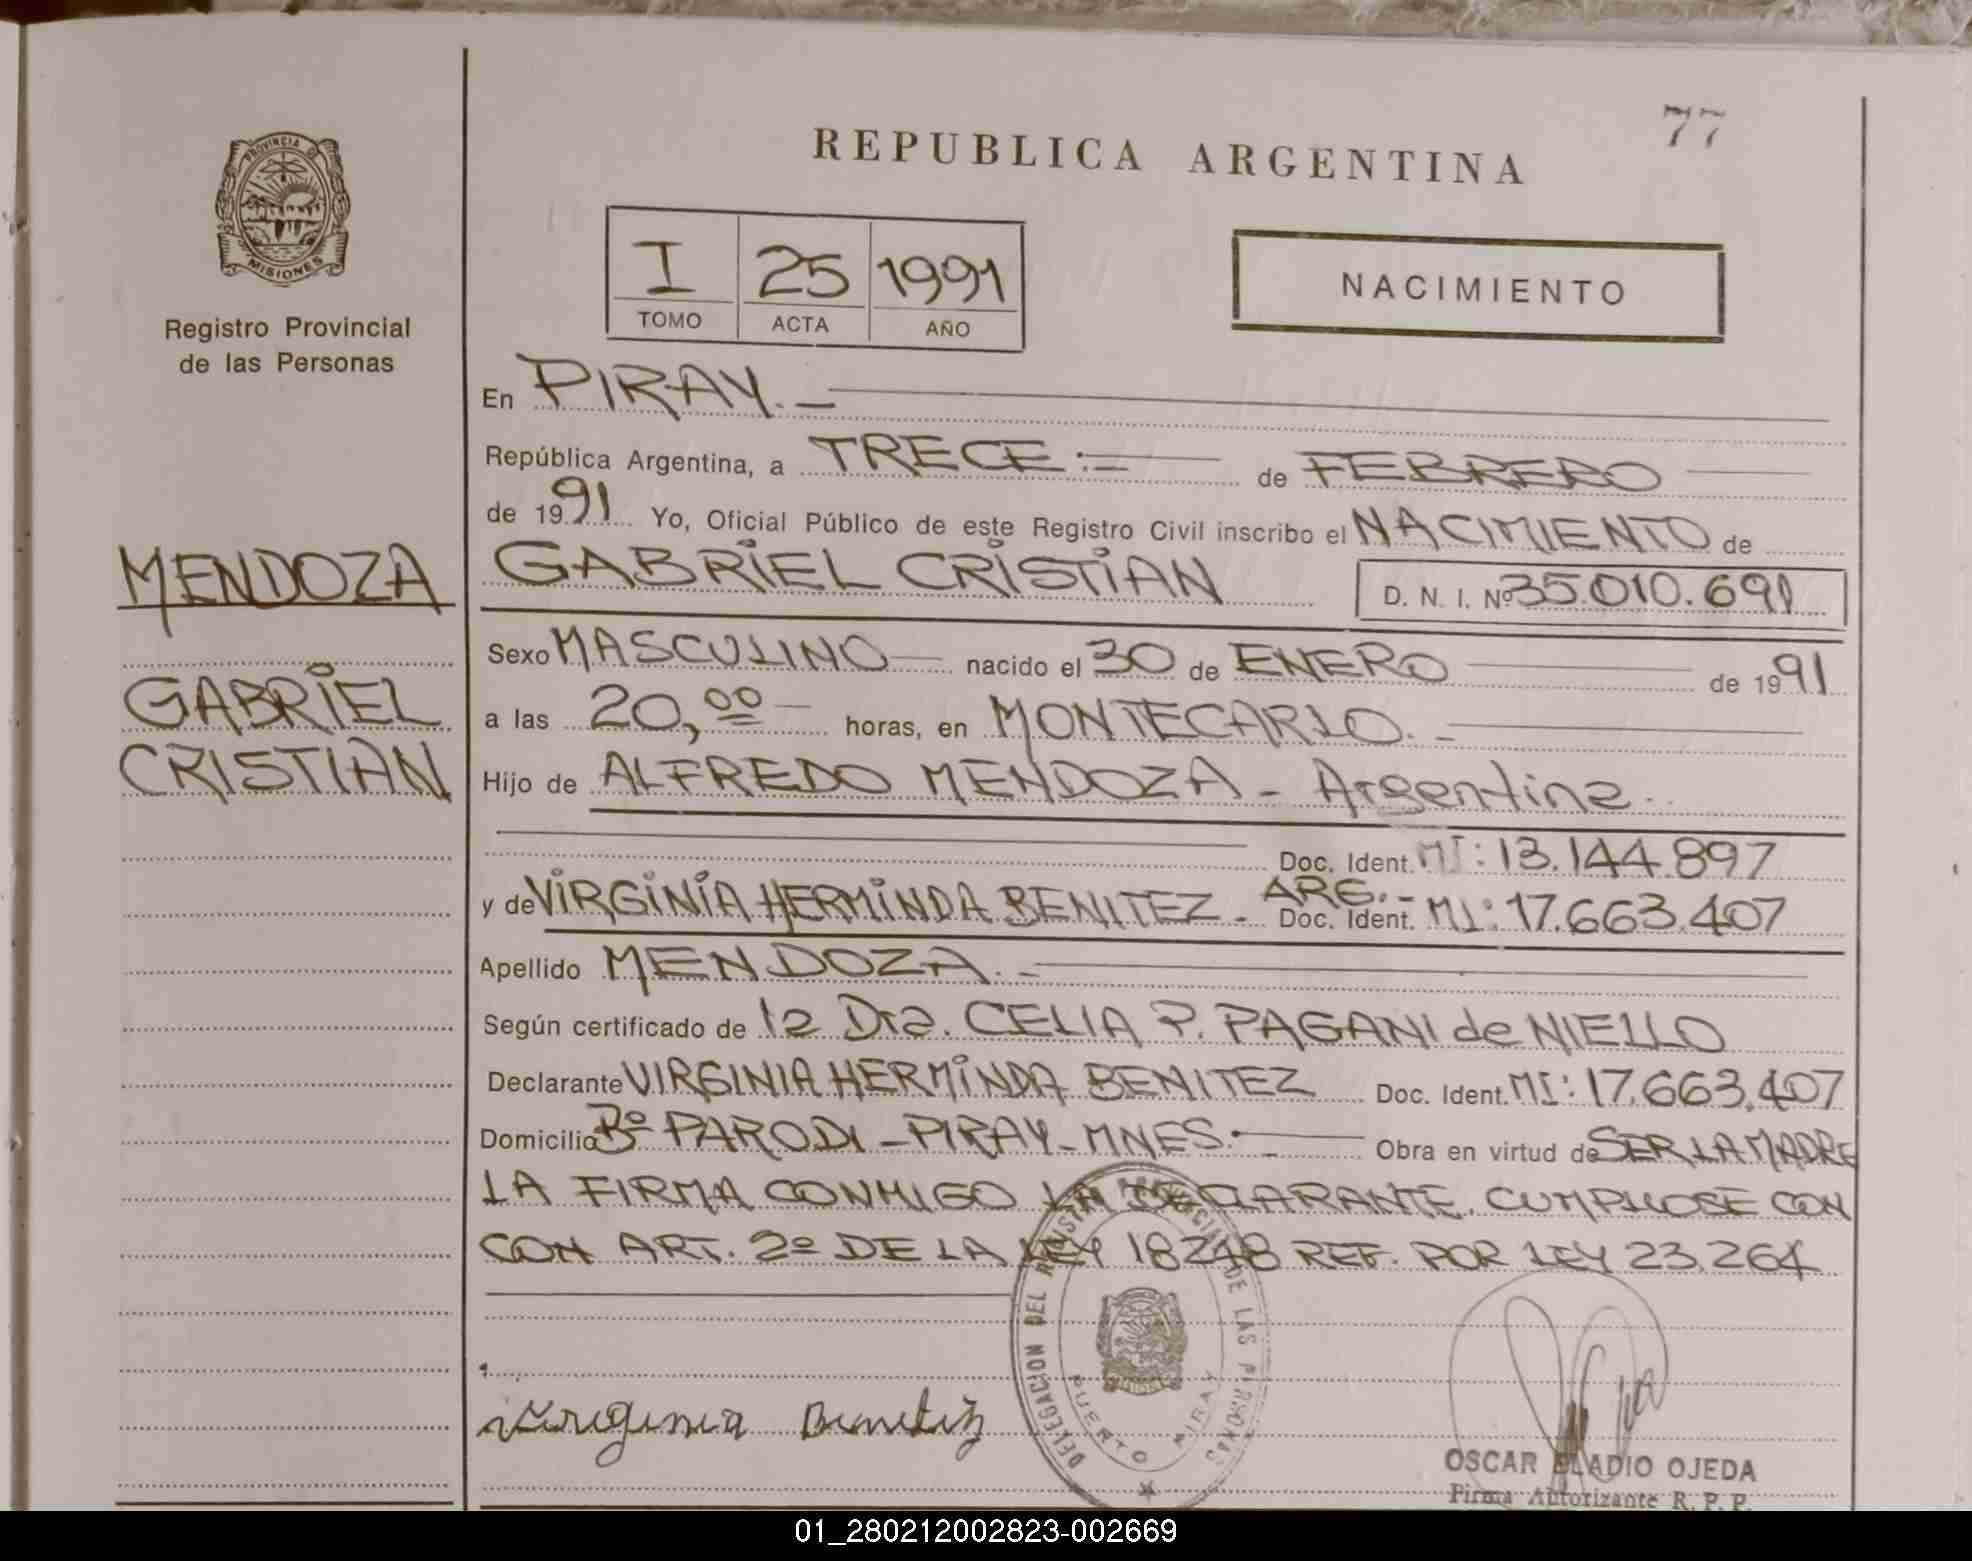 77
REPUBLICA ARGENTINA
PROVINCIA DE
MISIONES
Registro Provincial
de las Personas
I 25 1991
TOMO ACTA AÑO
NACIMIENTO
En PIRAY.-
República Argentina, a TRECE.= de FEBRERO
de 1991 Yo, Oficial Público de este Registro Civil inscribo el NACIMIENTO de
MENDOZA
GABRIEL
CRISTIAN
GABRIEL CRISTIAN D. N. I. Nº 35.010.691
Sexo MASCULINO nacido el 30 de ENERO de 1991
a las 20,00 horas, en MONTECARLO.-
Hijo de ALFREDO MENDOZA - Argentina.
Doc. Ident. MI: 13.144.897
y de VIRGINIA HERMINDA BENITEZ - ARG.- Doc. Ident. MI: 17.663.407
Apellido MENDOZA.-
Según certificado de la Dra. CELIA P. PAGANI de NIELLO
Declarante VIRGINIA HERMINDA BENITEZ Doc. Ident. MI: 17.663.407
Domicilio Bº PARODI - PIRAY - MNES.- Obra en virtud de SER LA MADRE
LA FIRMA CONMIGO LA DECLARANTE. CUMPLIOSE CON
CON ART. 2º DE LA LEY 18248 REF. POR LEY 23.264
Viregenia Benitez
DELEGACION DEL REGISTRO PROVINCIAL DE LAS PERSONAS
MISIONES
PUERTO PIRAY
OSCAR ELADIO OJEDA
Firma Autorizante R. P. P.
01_280212002823-002669